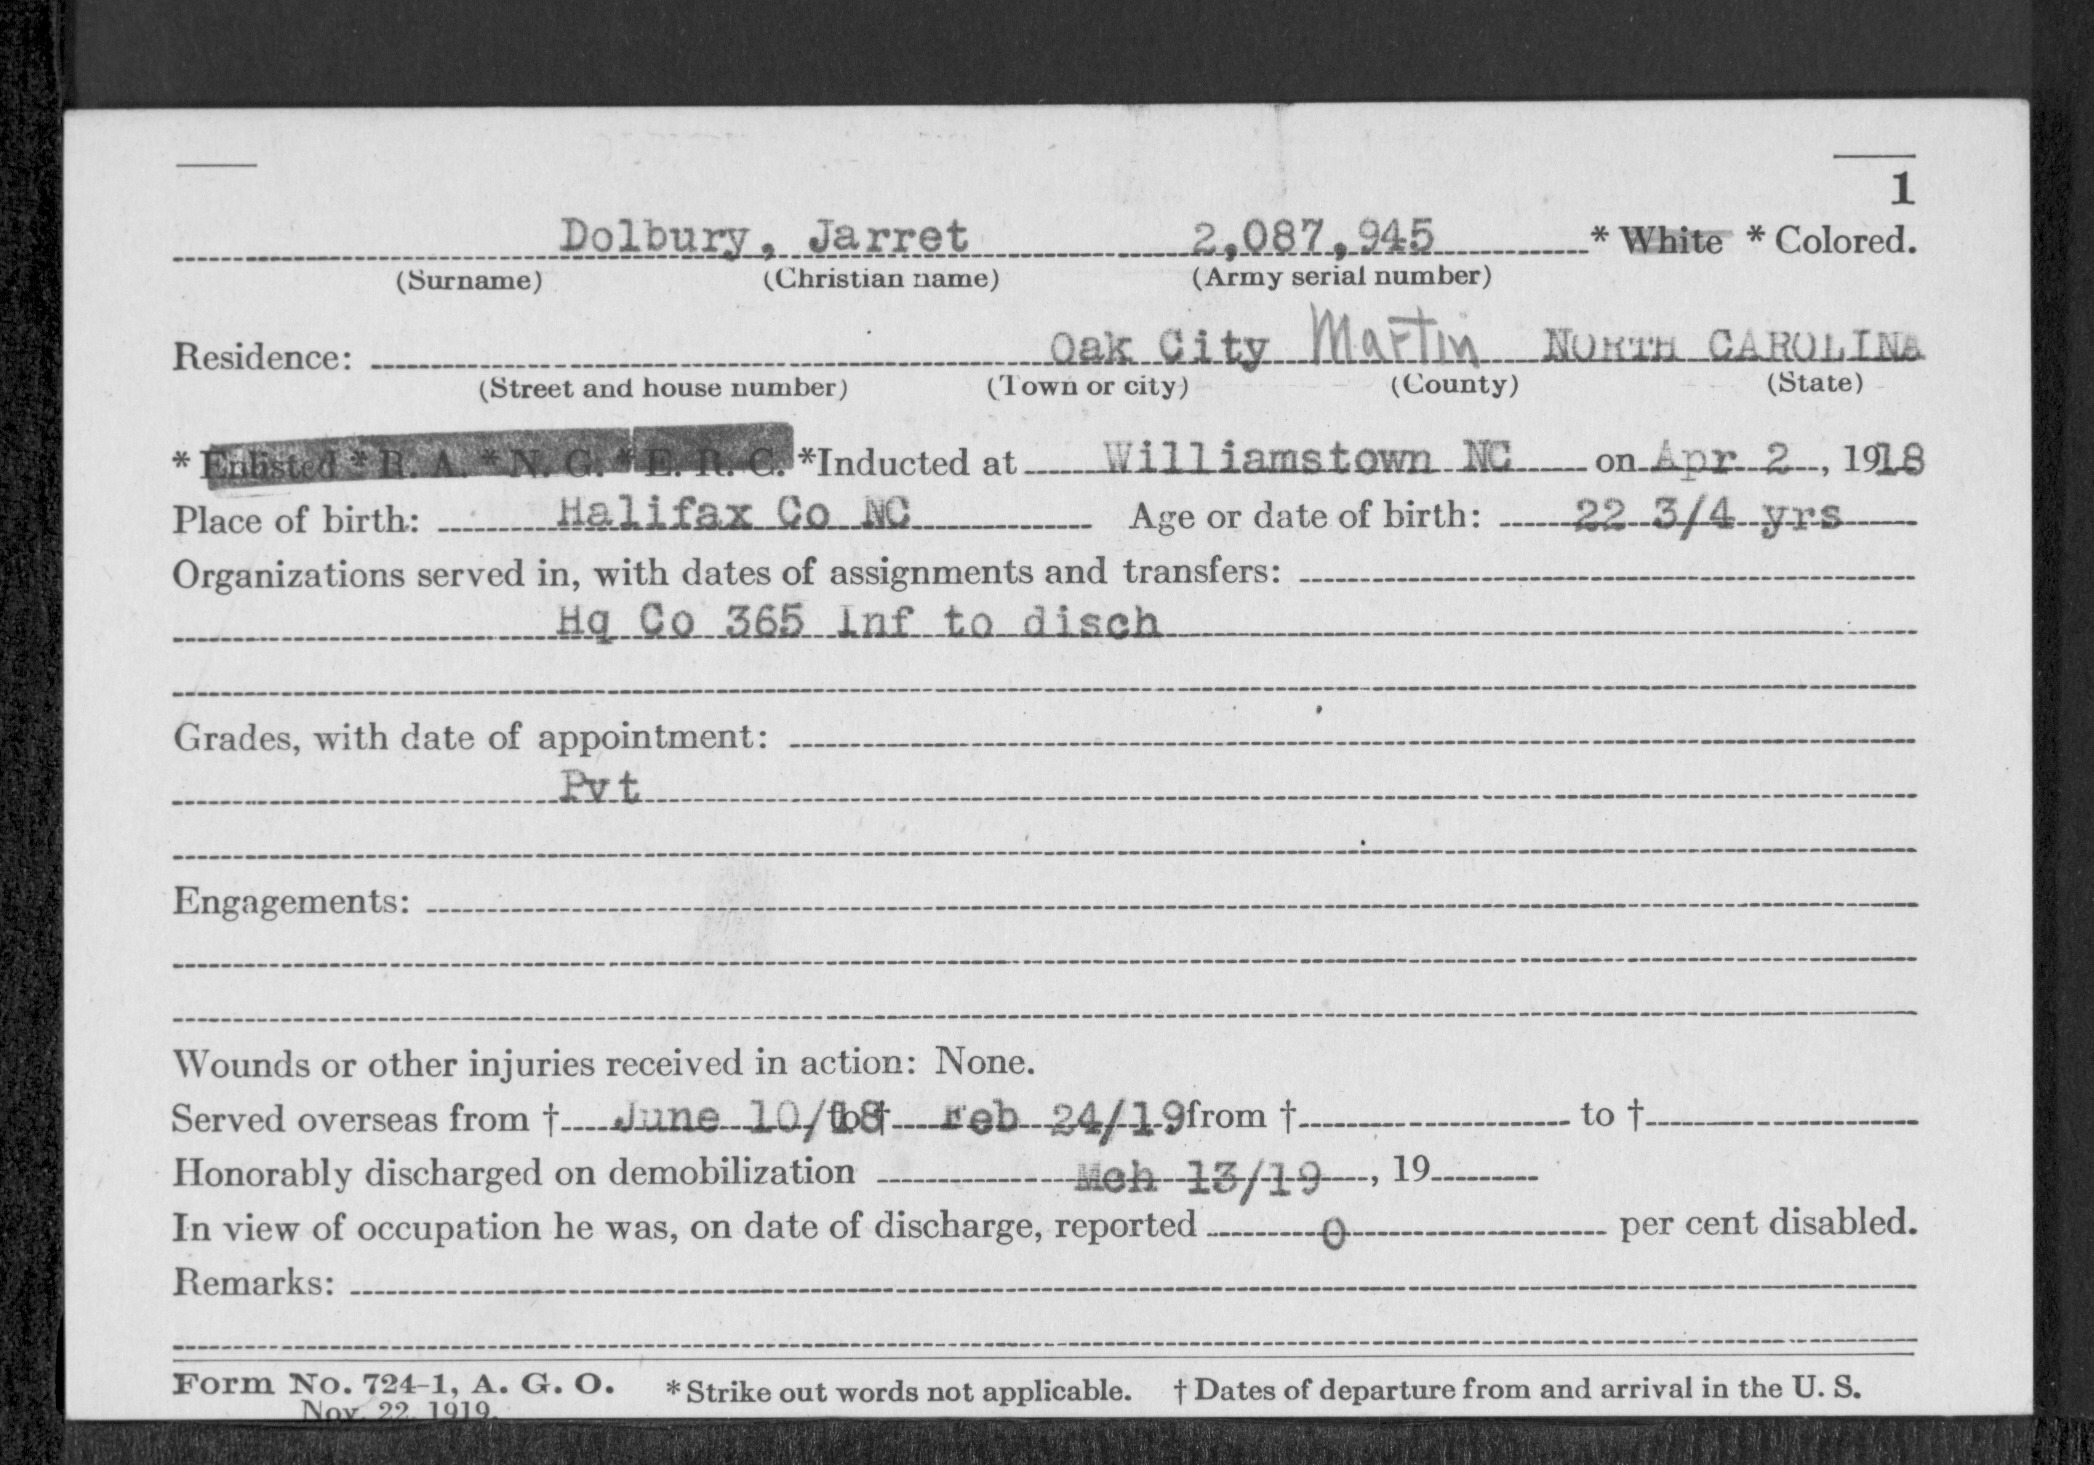 1
Dolbury, Jarret 2,087,945 * White * Colored.
(Surname) (Christian name) (Army serial number)
Residence: Oak City Martin NORTH CAROLINA
(Street and house number) (Town or city) (County) (State)
* Enlisted * R. A. * N. G. * E. R. C. *Inducted at Williamstown NC on Apr 2, 1918
Place of birth: Halifax Co NC Age or date of birth: 22 3/4 yrs
Organizations served in, with dates of assignments and transfers:
Hq Co 365 Inf to disch
Grades, with date of appointment:
Pvt
Engagements:
Wounds or other injuries received in action: None.
Served overseas from † June 10/18 to † Feb 24/19 from † to †
Honorably discharged on demobilization Mch 13/19, 19
In view of occupation he was, on date of discharge, reported 0 per cent disabled.
Remarks:
Form No. 724-1, A. G. O. * Strike out words not applicable. † Dates of departure from and arrival in the U. S.
Nov. 22, 1919.